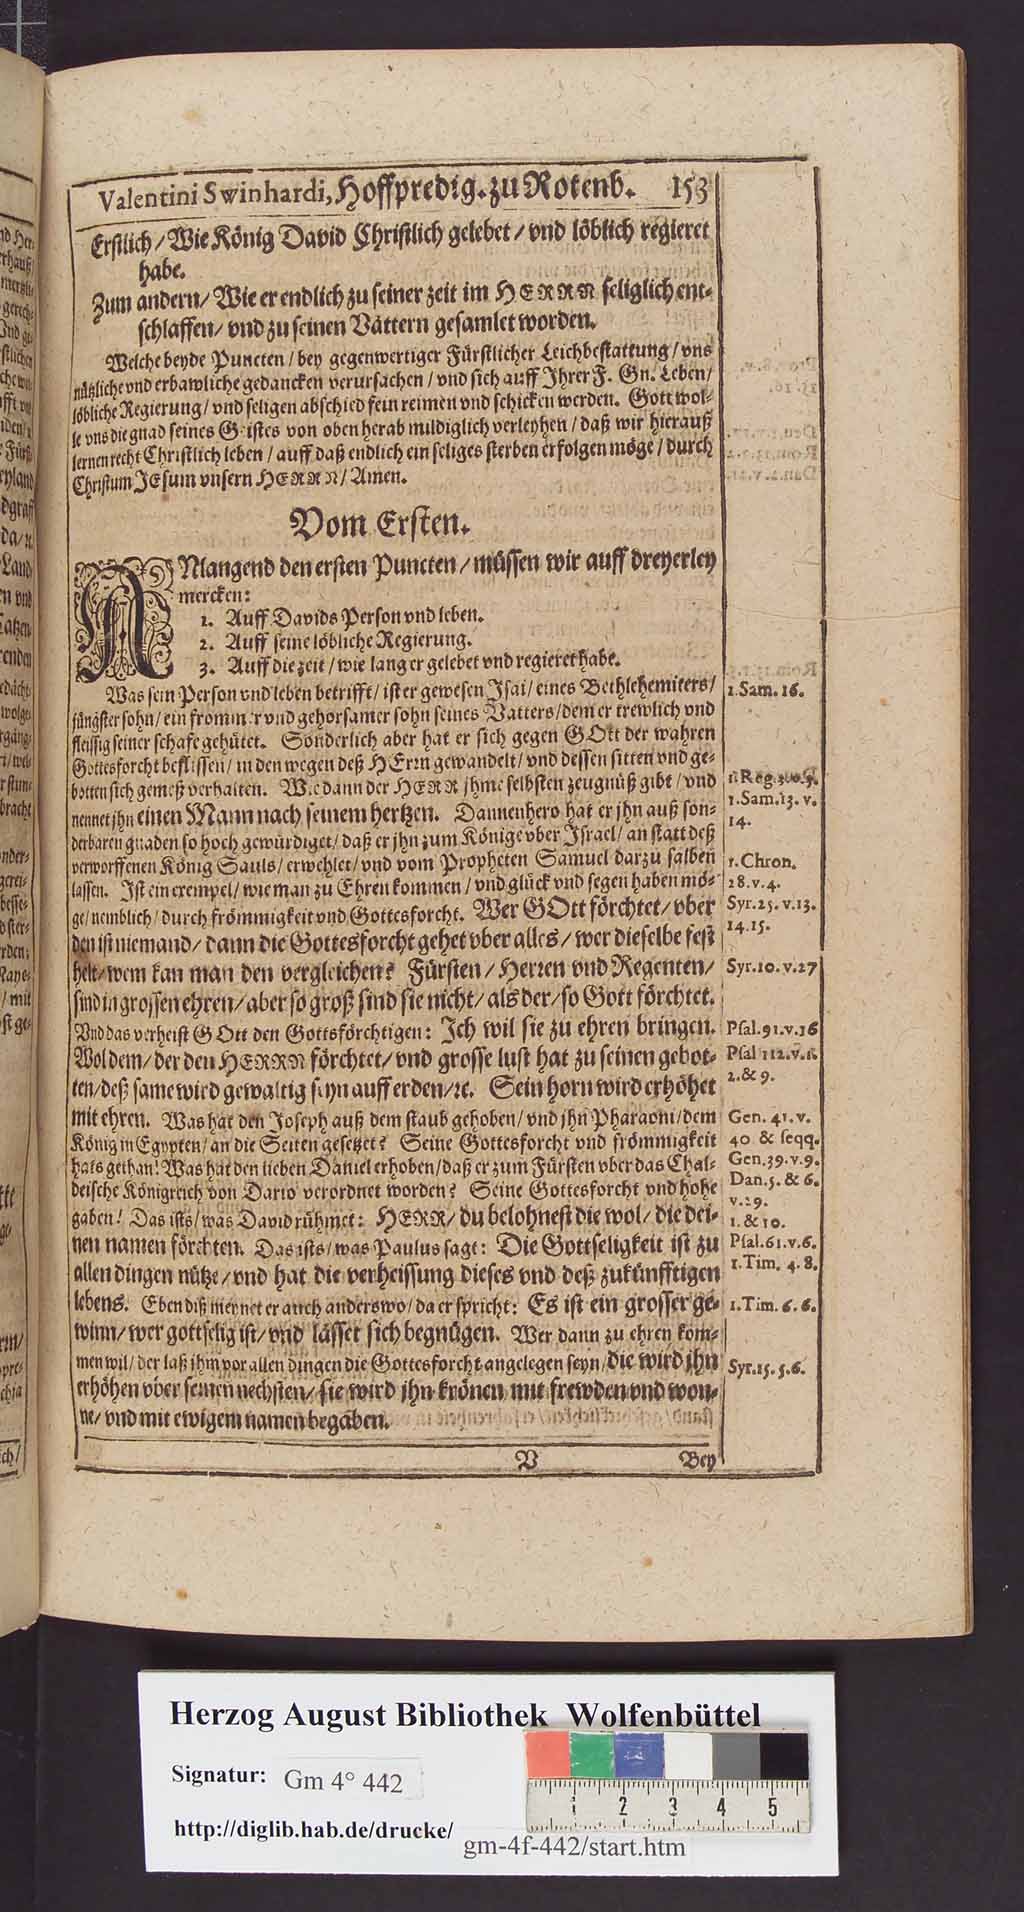 Valentini Swinhardi, Hoffpredig. zu Rotenb. 153
Erstlich/ Wie König David Christlich gelebet/ vnd löblich regieret
habe.
Zum andern/ Wie er endlich zu seiner zeit im HERRN seliglich ent-
schlaffen/ vnd zu seinen Vättern gesamlet worden.
Welche beyde Puncten/ bey gegenwertiger Fürstlicher Leichbestattung/ vns
nützliche vnd erbawliche gedancken verursachen/ vnd sich auff Ihrer F. Gn. Leben/
löbliche Regierung/ vnd seligen abschied fein reimen vnd schicken werden. Gott wol-
le vns die gnad seines Geistes von oben herab mildiglich verleyhen/ daß wir hierauß
lernen recht Christlich leben/ auff daß endlich ein seliges sterben erfolgen möge/ durch
Christum JEsum vnsern HERRN/ Amen.
Vom Ersten.
ANlangend den ersten Puncten/ müssen wir auff dreyerley
mercken:
1. Auff Davids Person vnd leben.
2. Auff seine löbliche Regierung.
3. Auff die zeit/ wie lang er gelebet vnd regieret habe.
Was sein Person vnd leben betrifft/ ist er gewesen Isai/ eines Bethlehemiters/
jüngster sohn/ ein frommer vnd gehorsamer sohn seines Vatters/ dem er trewlich vnd
fleissig seiner schafe gehütet. Sonderlich aber hat er sich gegen GOtt der wahren
Gottesforcht beflissen/ in den wegen deß HErrn gewandelt/ vnd dessen sitten vnd ge-
botten sich gemeß verhalten. Wie dann der HERR jhme selbsten zeugnüß gibt/ vnd
nennet jhn einen Mann nach seinem hertzen. Dannenhero hat er jhn auß son-
derbaren gnaden so hoch gewürdiget/ daß er jhn zum Könige vber Israel/ an statt deß
verworffenen König Sauls/ erwehlet/ vnd vom Propheten Samuel darzu salben
lassen. Ist ein exempel/ wie man zu Ehren kommen/ vnd glück vnd segen haben mö-
ge/ nemblich/ durch frömmigkeit vnd Gottesforcht. Wer GOtt förchtet/ vber
den ist niemand/ dann die Gottesforcht gehet vber alles/ wer dieselbe fest
helt/ wem kan man den vergleichen? Fürsten/ Herren vnd Regenten/
sind in grossen ehren/ aber so groß sind sie nicht/ als der/ so Gott förchtet.
Vnd das verheist GOtt den Gottsförchtigen: Ich wil sie zu ehren bringen.
Wol dem/ der den HERRN förchtet/ vnd grosse lust hat zu seinen gebot-
ten/ deß same wird gewaltig seyn auff erden/ ꝛc. Sein horn wird erhöhet
mit ehren. Was hat den Joseph auß dem staub gehoben/ vnd jhn Pharaoni/ dem
König in Egypten/ an die Seiten gesetzet? Seine Gottesforcht vnd frömmigkeit
hats gethan! Was hat den lieben Daniel erhoben/ daß er zum Fürsten vber das Chal-
deische Königreich von Dario verordnet worden? Seine Gottesforcht vnd hohe
gaben! Das ists/ was David rühmet: HERR/ du belohnest die wol/ die dei-
nen namen förchten. Das ists/ was Paulus sagt: Die Gottseligkeit ist zu
allen dingen nütze/ vnd hat die verheissung dieses vnd deß zukünfftigen
lebens. Eben diß meynet er auch anderswo/ da er spricht: Es ist ein grosser ge-
winn/ wer gottselig ist/ vnd lässet sich begnügen. Wer dann zu ehren kom-
men wil/ der laß jhm vor allen dingen die Gottesforcht angelegen seyn/ die wird jhn
erhöhen vber seinen nechsten/ sie wird jhn krönen mit frewden vnd won-
ne/ vnd mit ewigem namen begaben.
V Bey
1. Sam. 16.
1. Sam. 13. v.
14.
1. Chron.
28. v. 4.
Syr. 25. v. 13.
14. 15.
Syr. 10. v. 27
Psal. 91. v. 16
Psal 112. v. 1.
2. & 9.
Gen. 41. v.
40 & seqq.
Gen. 39. v. 9.
Dan. 5. & 6.
v. 29.
1. & 10.
Psal. 61. v. 6.
1. Tim. 4. 8.
1. Tim. 6. 6.
Syr. 15. 5. 6.
Herzog August Bibliothek Wolfenbüttel
Signatur: Gm 4° 442
http://diglib.hab.de/drucke/ gm-4f-442/start.htm
1 2 3 4 5